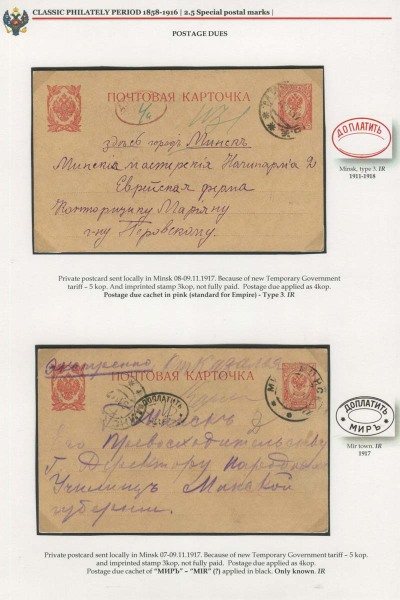 CLASSIC PHILATELY PERIOD 1858-1916 | 2.5 Special postal marks |
POSTAGE DUES
ПОЧТОВАЯ КАРТОЧКА
здѣсь городъ Минскъ
Минскія мастерскія
Еврейская
Конторщику Марьяну
Перовскому.
ДОПЛАТИТЬ
Minsk, type 3. IR
1911-1918
Private postcard sent locally in Minsk 08-09.11.1917. Because of new Temporary Government
tariff – 5 kop. And imprinted stamp 3kop, not fully paid. Postage due applied as 4kop.
Postage due cachet in pink (standard for Empire) - Type 3. IR
ПОЧТОВАЯ КАРТОЧКА
Экстренно
Минскъ
Его Превосходительству
Г. Директору народныхъ
Училищъ Минской
губерніи.
ДОПЛАТИТЬ
МИРЪ
Mir town. IR
1917
Private postcard sent locally in Minsk 07-09.11.1917. Because of new Temporary Government tariff – 5 kop.
and imprinted stamp 3kop, not fully paid. Postage due applied as 4kop.
Postage due cachet of "МИРЪ" – "MIR" (?) applied in black. Only known. IR